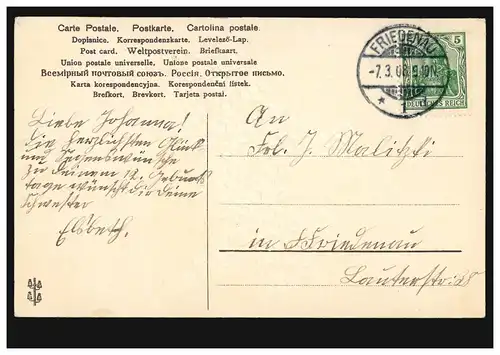 Carte Postale. Postkarte. Cartolina postale.
Dopisnice. Korrespondenzkarte. Levelező-Lap.
Post card. Weltpostverein. Briefkaart.
Union postale universelle. Unione postale universale
Всемірный почтовый союзъ. Россія. Открытое письмо.
Karta korespondencyjna. Korespondenční listek.
Brefkort. Brevkort. Tarjeta postal.
FRIEDENAU
-7.3.08
5
DEUTSCHES REICH
Liebe Johanna!
die herzlichsten Glück
und Segenswünsche
zu deinem 12. Geburts
tage wünscht dir deine
Schwester
Elsbeth.
An
Frl. J. Malitzki
in Friedenau
Lauterstr.